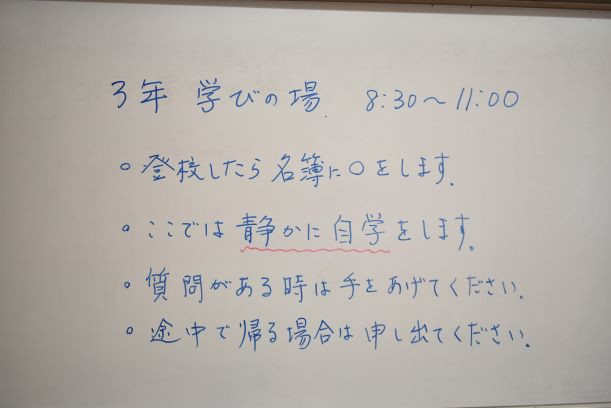 3年 学びの場. 8:30～11:00
○ 登校したら名簿に○をします.
○ ここでは静かに自学をします。
○ 質問がある時は手をあげてください.
○ 途中で帰る場合は申し出てください.